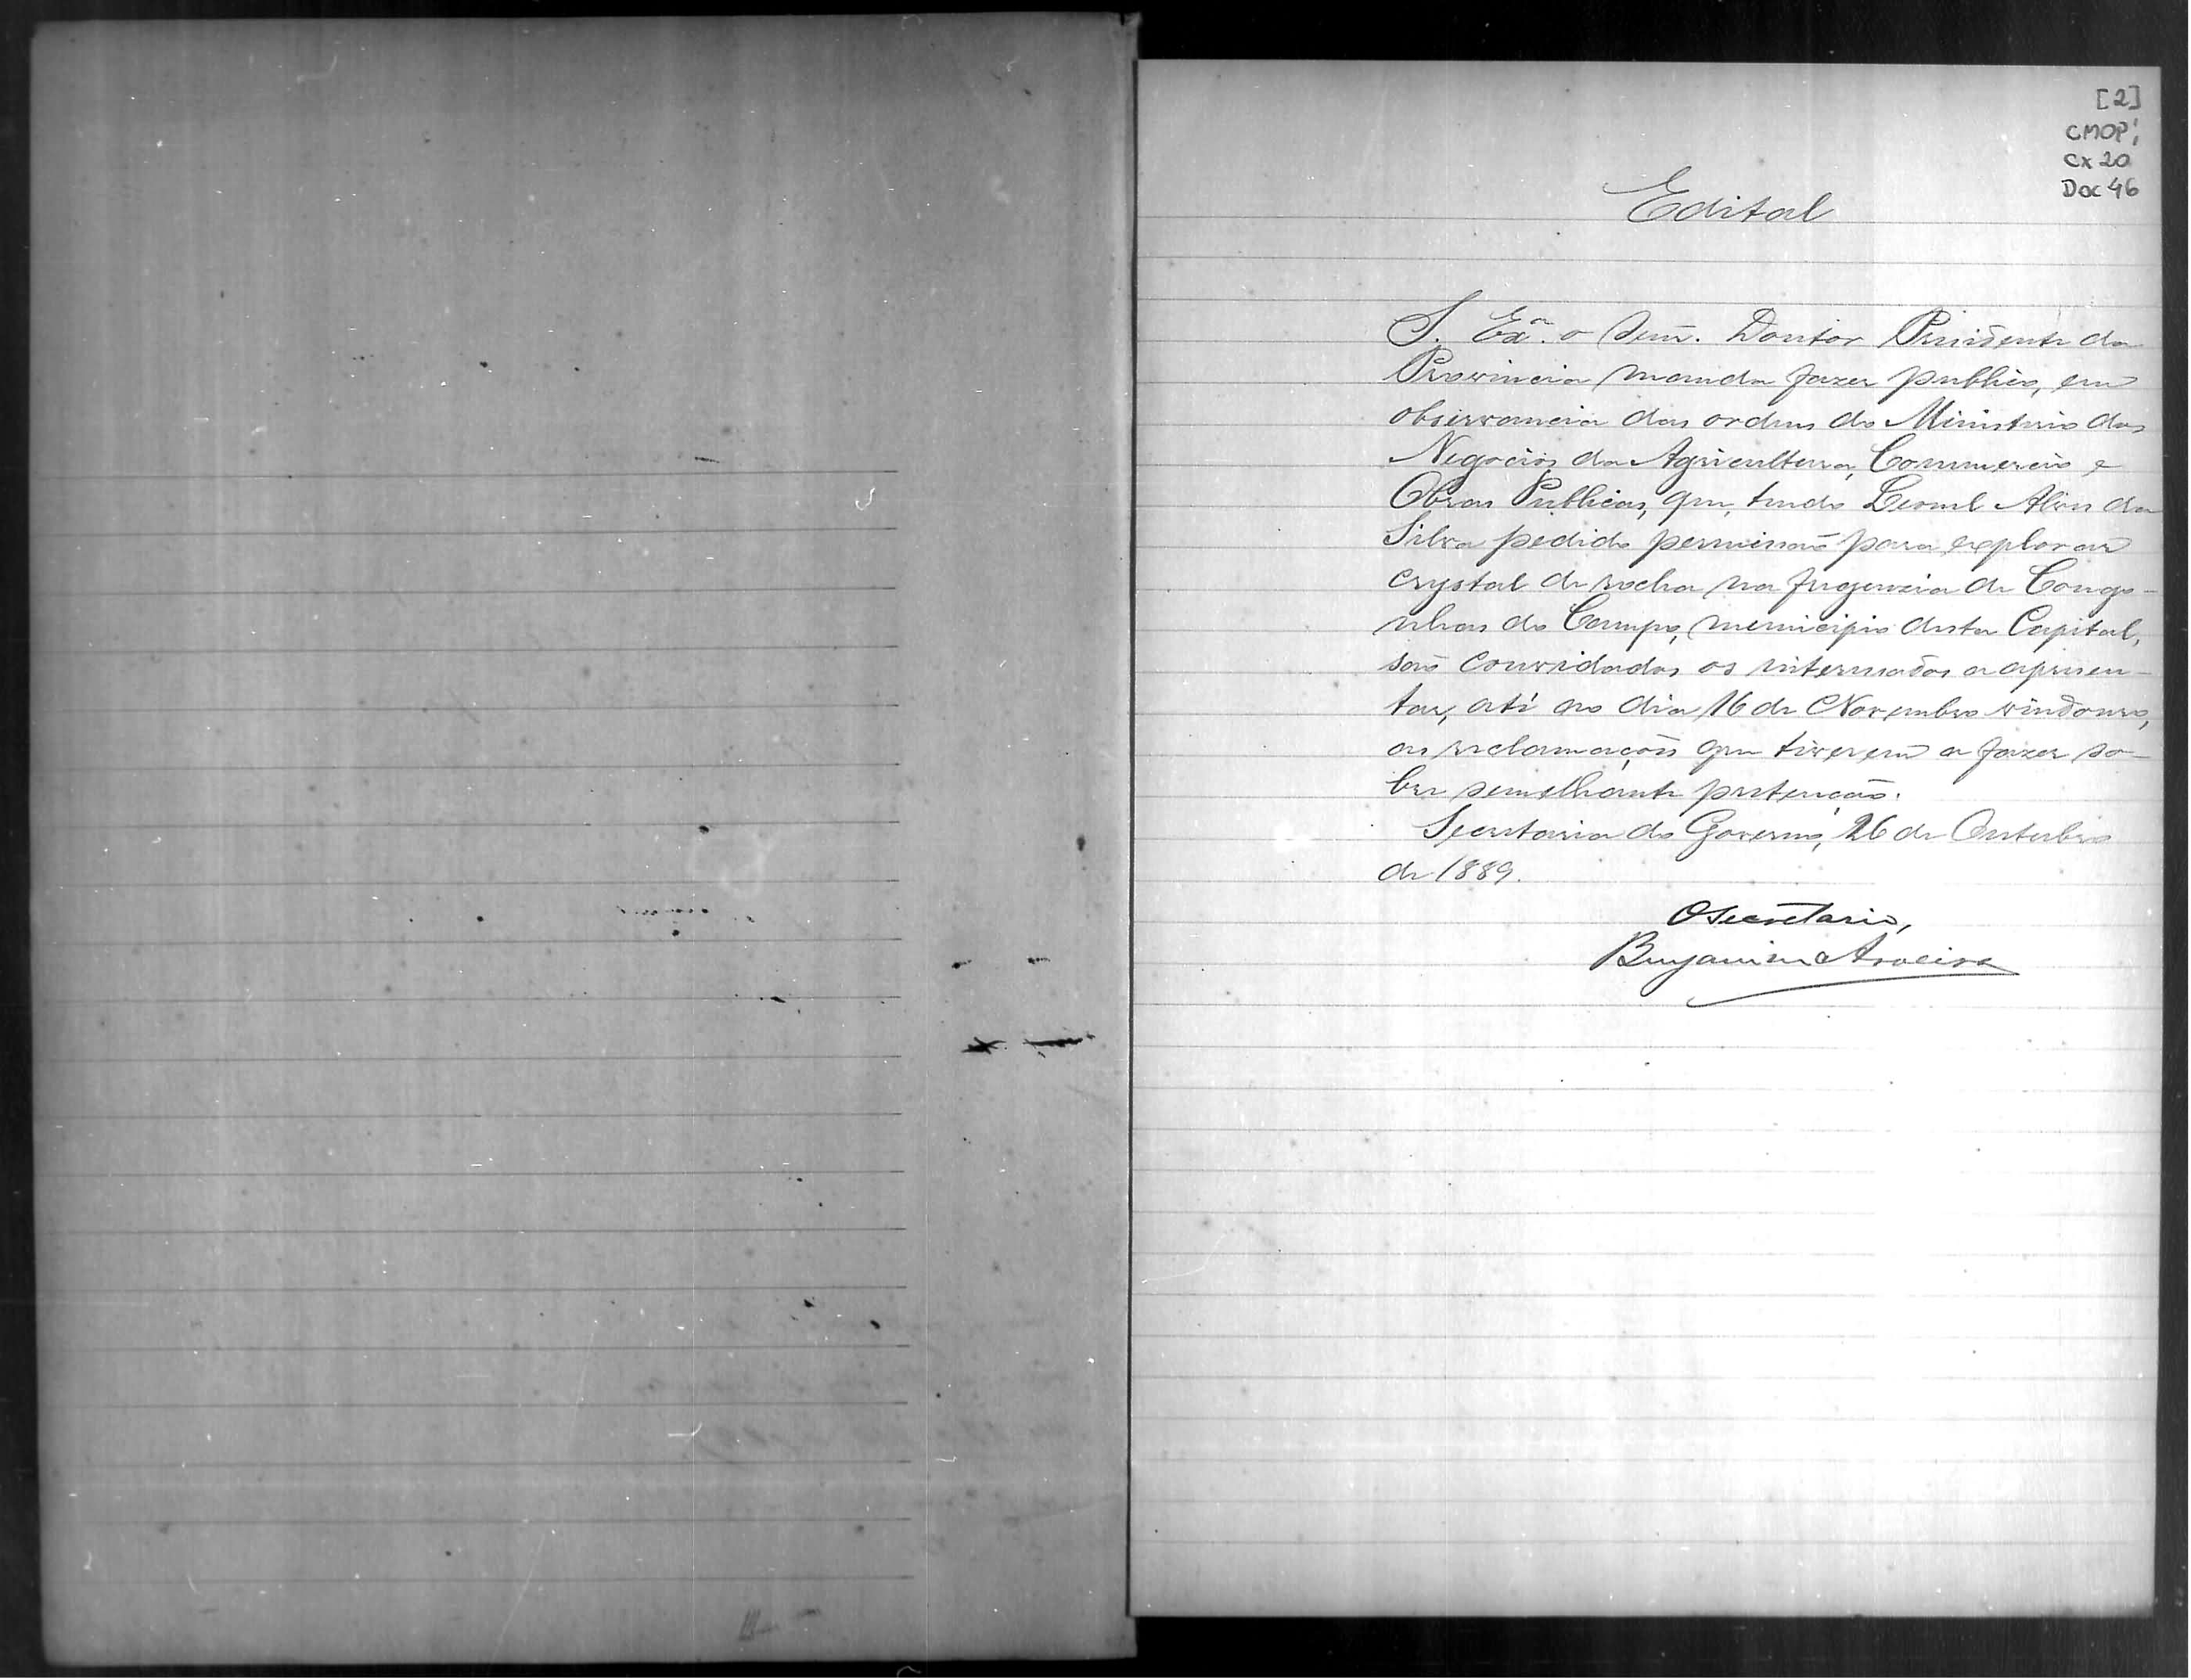 [2]
CMOP;
Cx 20
Doc 46
Edital
S. Exª. o Senr. Doutor Presidente da
Provincia manda fazer publico, em
observancia das ordens do Ministerio dos
Negocios da Agricultura, Commercio e
Obras Publicas, que, tendo Leonel Alves da
Silva pedido permissaõ para explorar
crystal de rocha na freguezia de Congo-
nhas do Campo, municipio desta Capital,
saõ convidados os interessados a apresen-
tar, até ao dia 16 de Novembro vindouro,
as reclamações que tiverem a fazer so-
bre semelhante pretenção.
Secretaria do Governo, 26 de Outubro
de 1889.
O Secretario,
Benjamim Aroeira